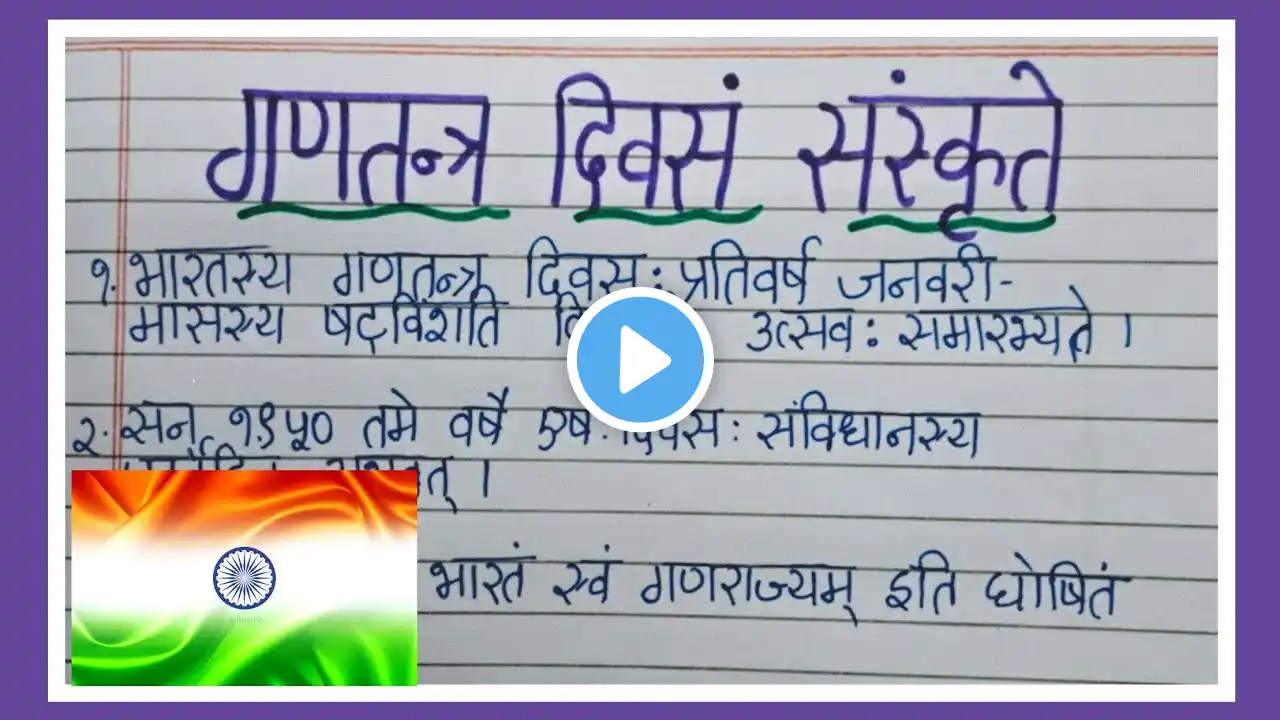 गणतन्त्र दिवसं संस्कृते
१. भारतस्य गणतन्त्र दिवस: प्रतिवर्ष जनवरी-
मासस्य षट्विंशति उत्सव: समारभ्यते ।
२. सन् १९५० तमे वर्षे एष: दिवस: संविधानस्य
भारतं स्वं गणराज्यम् इति घोषितं